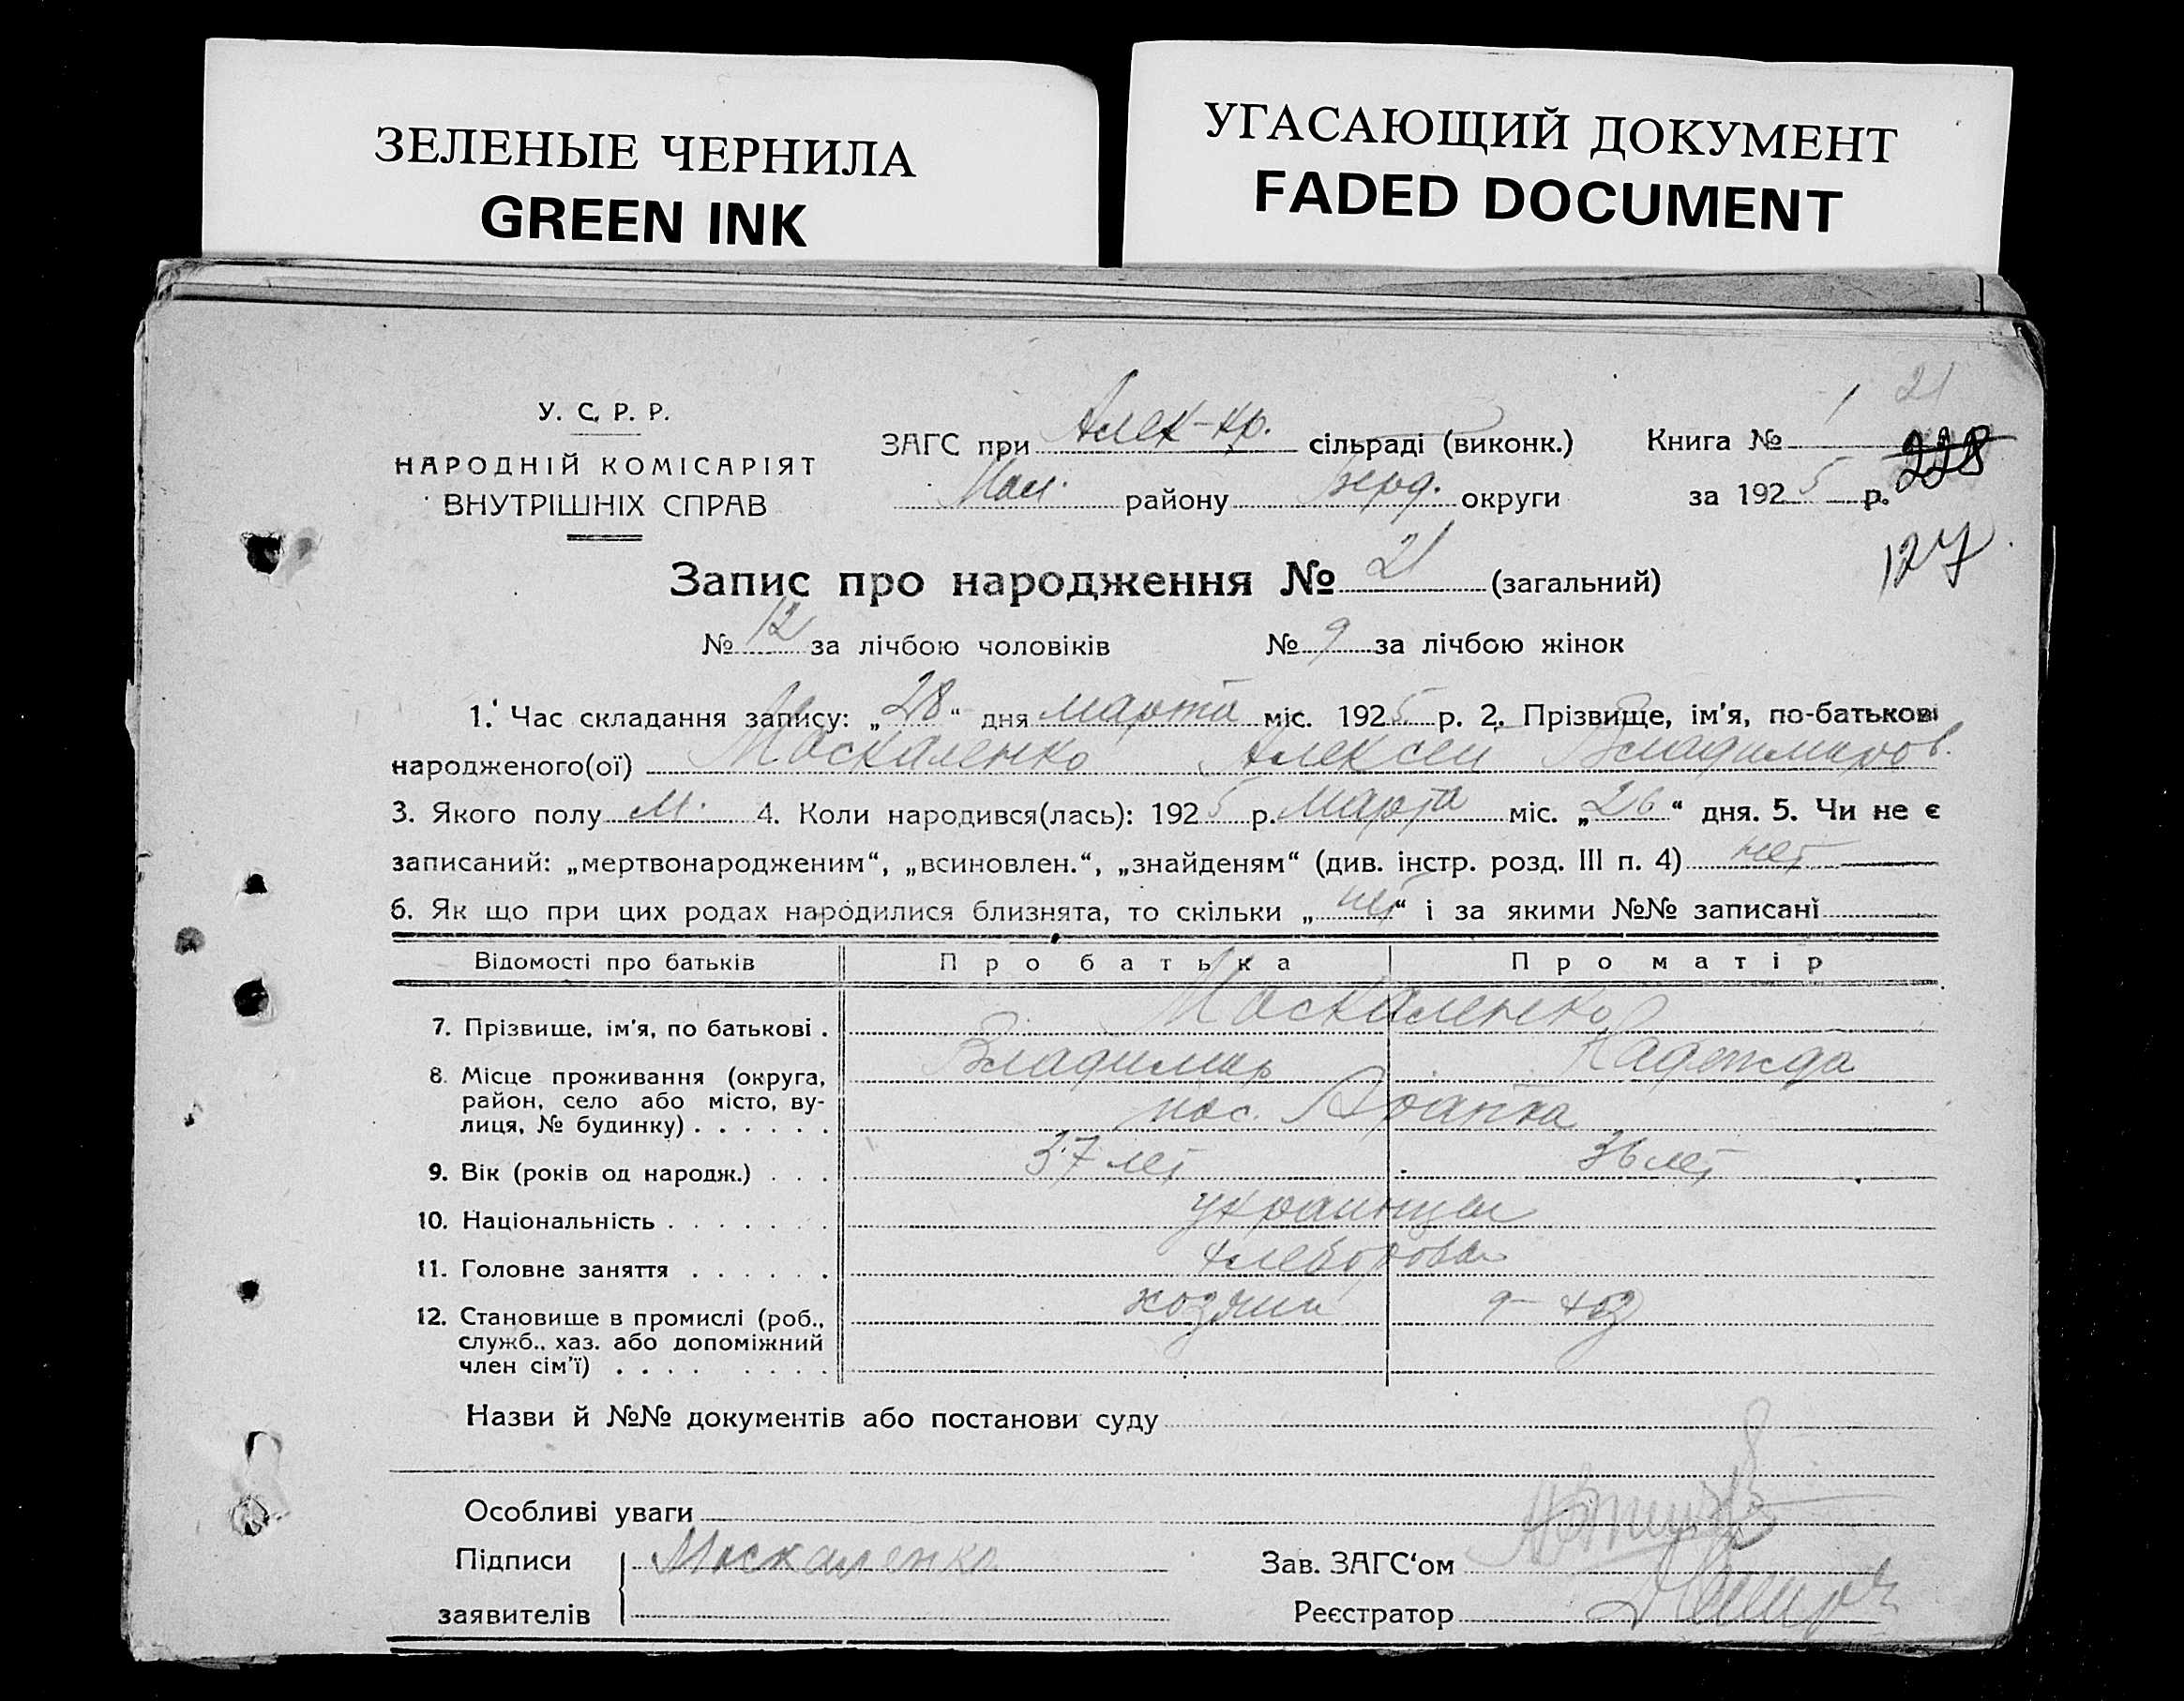 ЗЕЛЕНЫЕ ЧЕРНИЛА
GREEN INK
УГАСАЮЩИЙ ДОКУМЕНТ
FADED DOCUMENT
21
У. С. Р. Р.
НАРОДНІЙ КОМІСАРІЯТ
ВНУТРІШНІХ СПРАВ
ЗАГС при Алек-кр. сільраді (виконк.) Книга № 1
228
района Берд. округи за 1925 р.
127
Запис про народження № 21 (загальний)
№ 12 за лічбою чоловіків № 9 за лічбою жінок
1. Час складання запису: „28“ дня марта міс. 1925 р. 2. Прізвище, ім'я, по-батькові
народженого(ої) Москаленко Алексей Владимиров.
3. Якого полу м. 4. Коли народився(лась): 1925 р. Марта міс. „26“ дня. 5. Чи не є
записаний: „мертвонародженим“, „всиновлен.“, „знайденям“ (див. інстр. розд. III п. 4) нет
6. Як що при цих родах народилися близнята, то скільки „нет“ і за якими №№ записані
Відомості про батьків Про батька Про матір
7. Прізвище, ім'я, по батькові . Москаленко
Владимир Надежда
8. Місце проживання (округа,
район, село або місто, ву-
лиця, № будинку) . . . . . . пос.
9. Вік (років од народж.) . . . 37 лет 36 лет
10. Національність . . . . . . . украинцы
11. Головне заняття . . . . . . хлеборобы
12. Становище в промислі (роб.,
служб., хаз. або допоміжний
член сім'ї) . . . . . . . . хозяин
Назви й №№ документів або постанови суду
Особливі уваги
Підписи
заявителів Москаленко
Зав. ЗАГС‘ом
Реєстратор